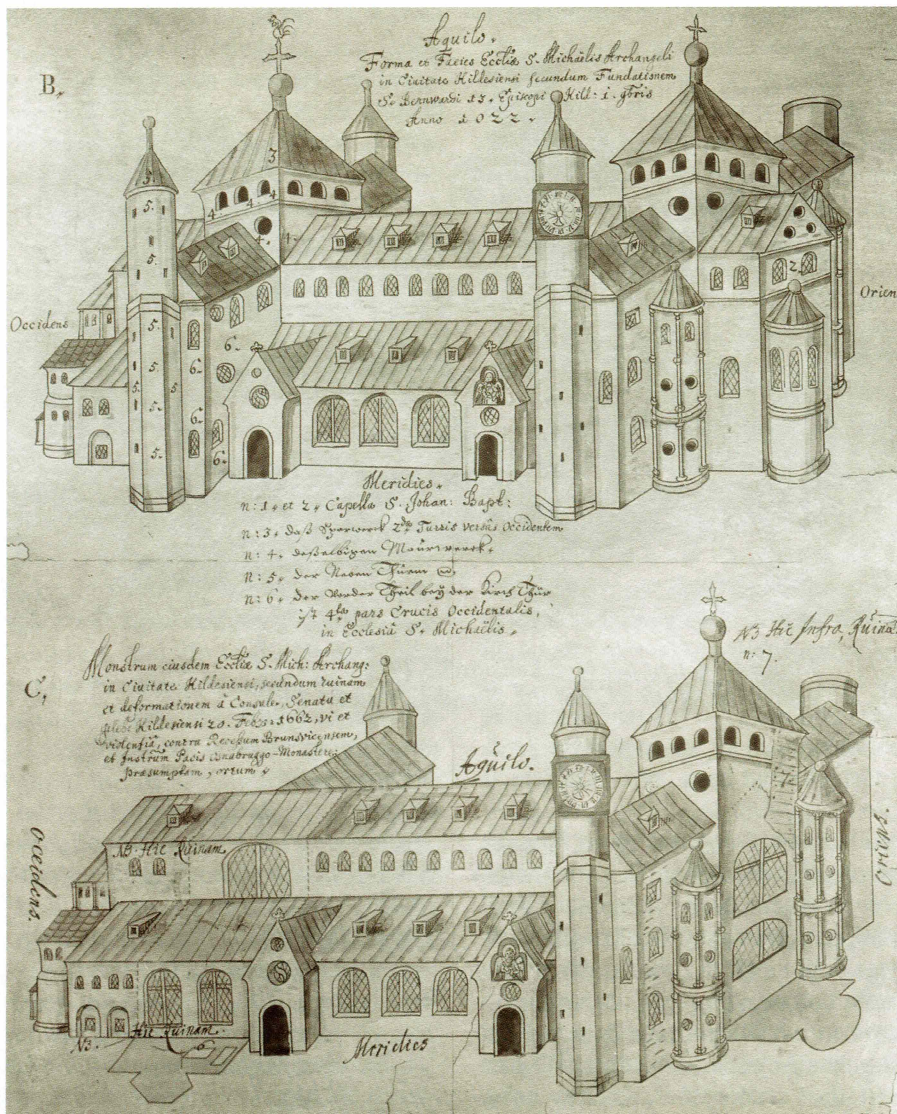 B.
Aquilo.
Forma et Facies Eccliæ S. Michaëlis Archangeli
in Civitate Hildesiensi secundum Fundationem
S. Bernwardi 13. Episcopi Hild: 1. 9bris
Anno 1022.
Occidens
Orien
3
4 4 4
4. 4.
5.
5.
5.
5. 5.
5.
5.
6.
6.
6.
6.
2.
Meridies.
n: 1. et 2. Capella S. Johan: Bapt:
n: 3. daß Sparwerck Turris versus Occidentem
n: 4. deßelbigen Maurwerck.
n: 5. der Neben Thürm
n: 6. der Vorder Theil bey der Kirch Thür
ist 4ta pars Crucis Occidentalis,
in Ecclesiâ S. Michaëlis.
C.
Monstrum eiusdem Eccliæ S. Mich: Archang:
in Civitate Hildesiensi, secundum ruinam
et deformationem â Consule, Senatu et
plebe Hildesiensi 20. Febr: 1662, vi et
violentiâ, contra Recessum Brunsvicensem,
et Instrum Pacis Osnabruggo-Monasteriens:
præsumptam, ortum.
NB Hic Infra, Ruina
n: 7.
Aquilo.
7
occidens.
Oriens.
NB. Hic Ruinam
Hic Ruinam.
NB.
6
Meridies